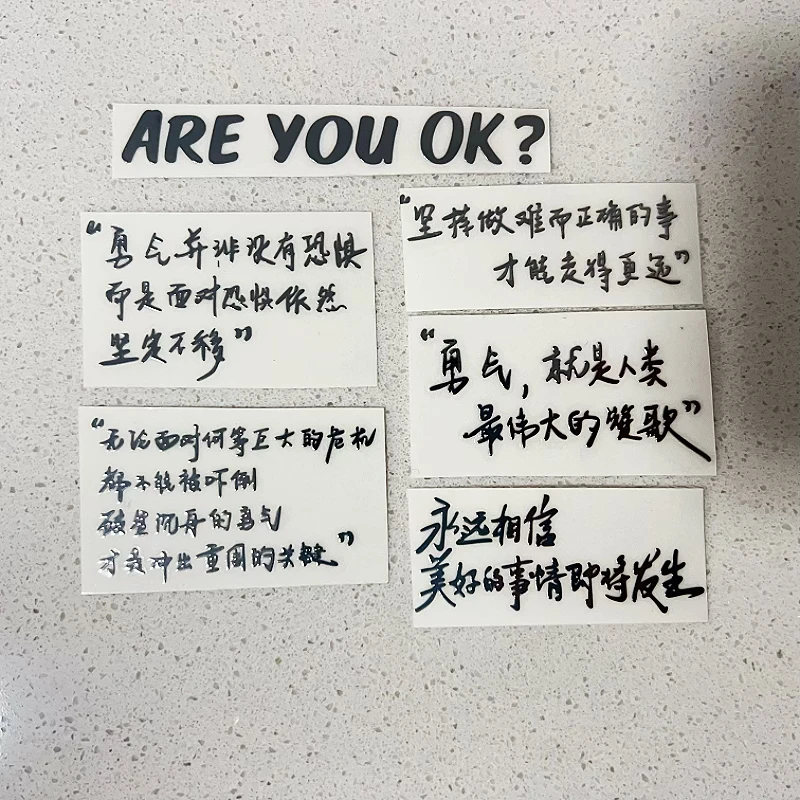 ARE YOU OK?
“勇气并非没有恐惧
而是面对恐惧依然
坚定不移”
“坚持做难而正确的事
才能走得更远”
“勇气，就是人类
最伟大的赞歌”
“无论面对何等巨大的危机
都不能被吓倒
破釜沉舟的勇气
才是冲出重围的关键”
永远相信
美好的事情即将发生